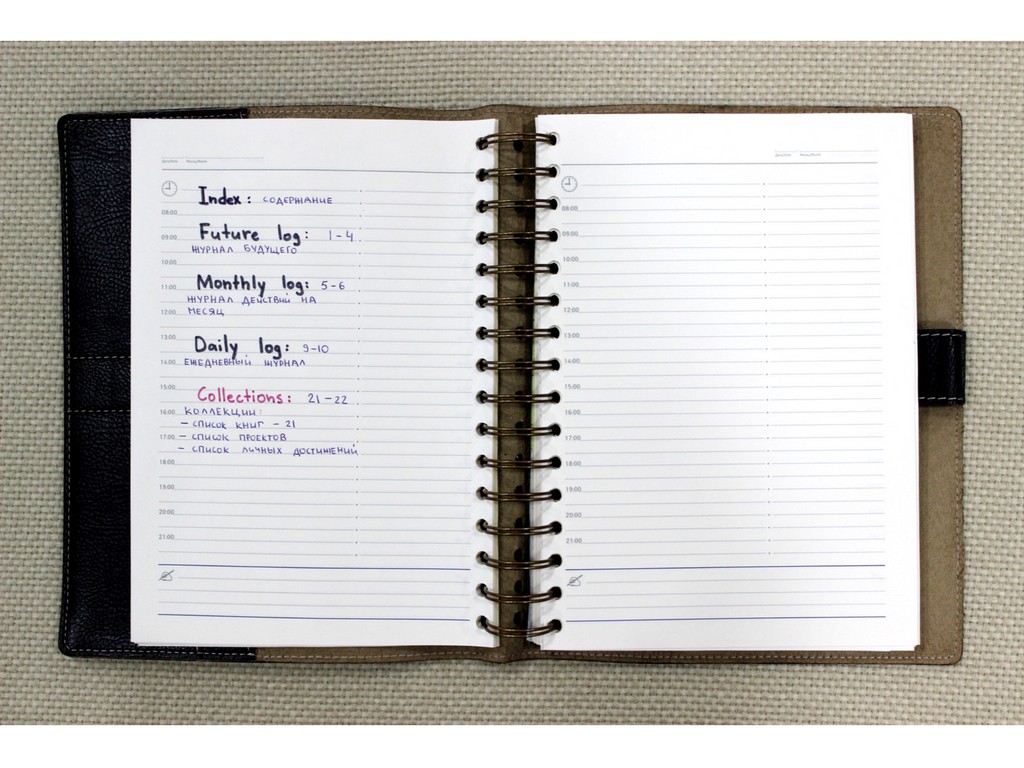 Index: СОДЕРЖАНИЕ
08:00
Future log: 1-4
09:00
ЖУРНАЛ БУДУЩЕГО
10:00
Monthly log: 5-6
11:00
ЖУРНАЛ ДЕЙСТВИЙ НА
МЕСЯЦ
12:00
13:00
Daily log: 9-10
ЕЖЕДНЕВНЫЙ ЖУРНАЛ
14:00
15:00
Collections: 21-22
КОЛЛЕКЦИИ:
16:00
- СПИСОК КНИГ - 21
- СПИСОК ПРОЕКТОВ
17:00
- СПИСОК ЛИЧНЫХ ДОСТИЖЕНИЙ
18:00
19:00
20:00
21:00
08:00
09:00
10:00
11:00
12:00
13:00
14:00
15:00
16:00
17:00
18:00
19:00
20:00
21:00